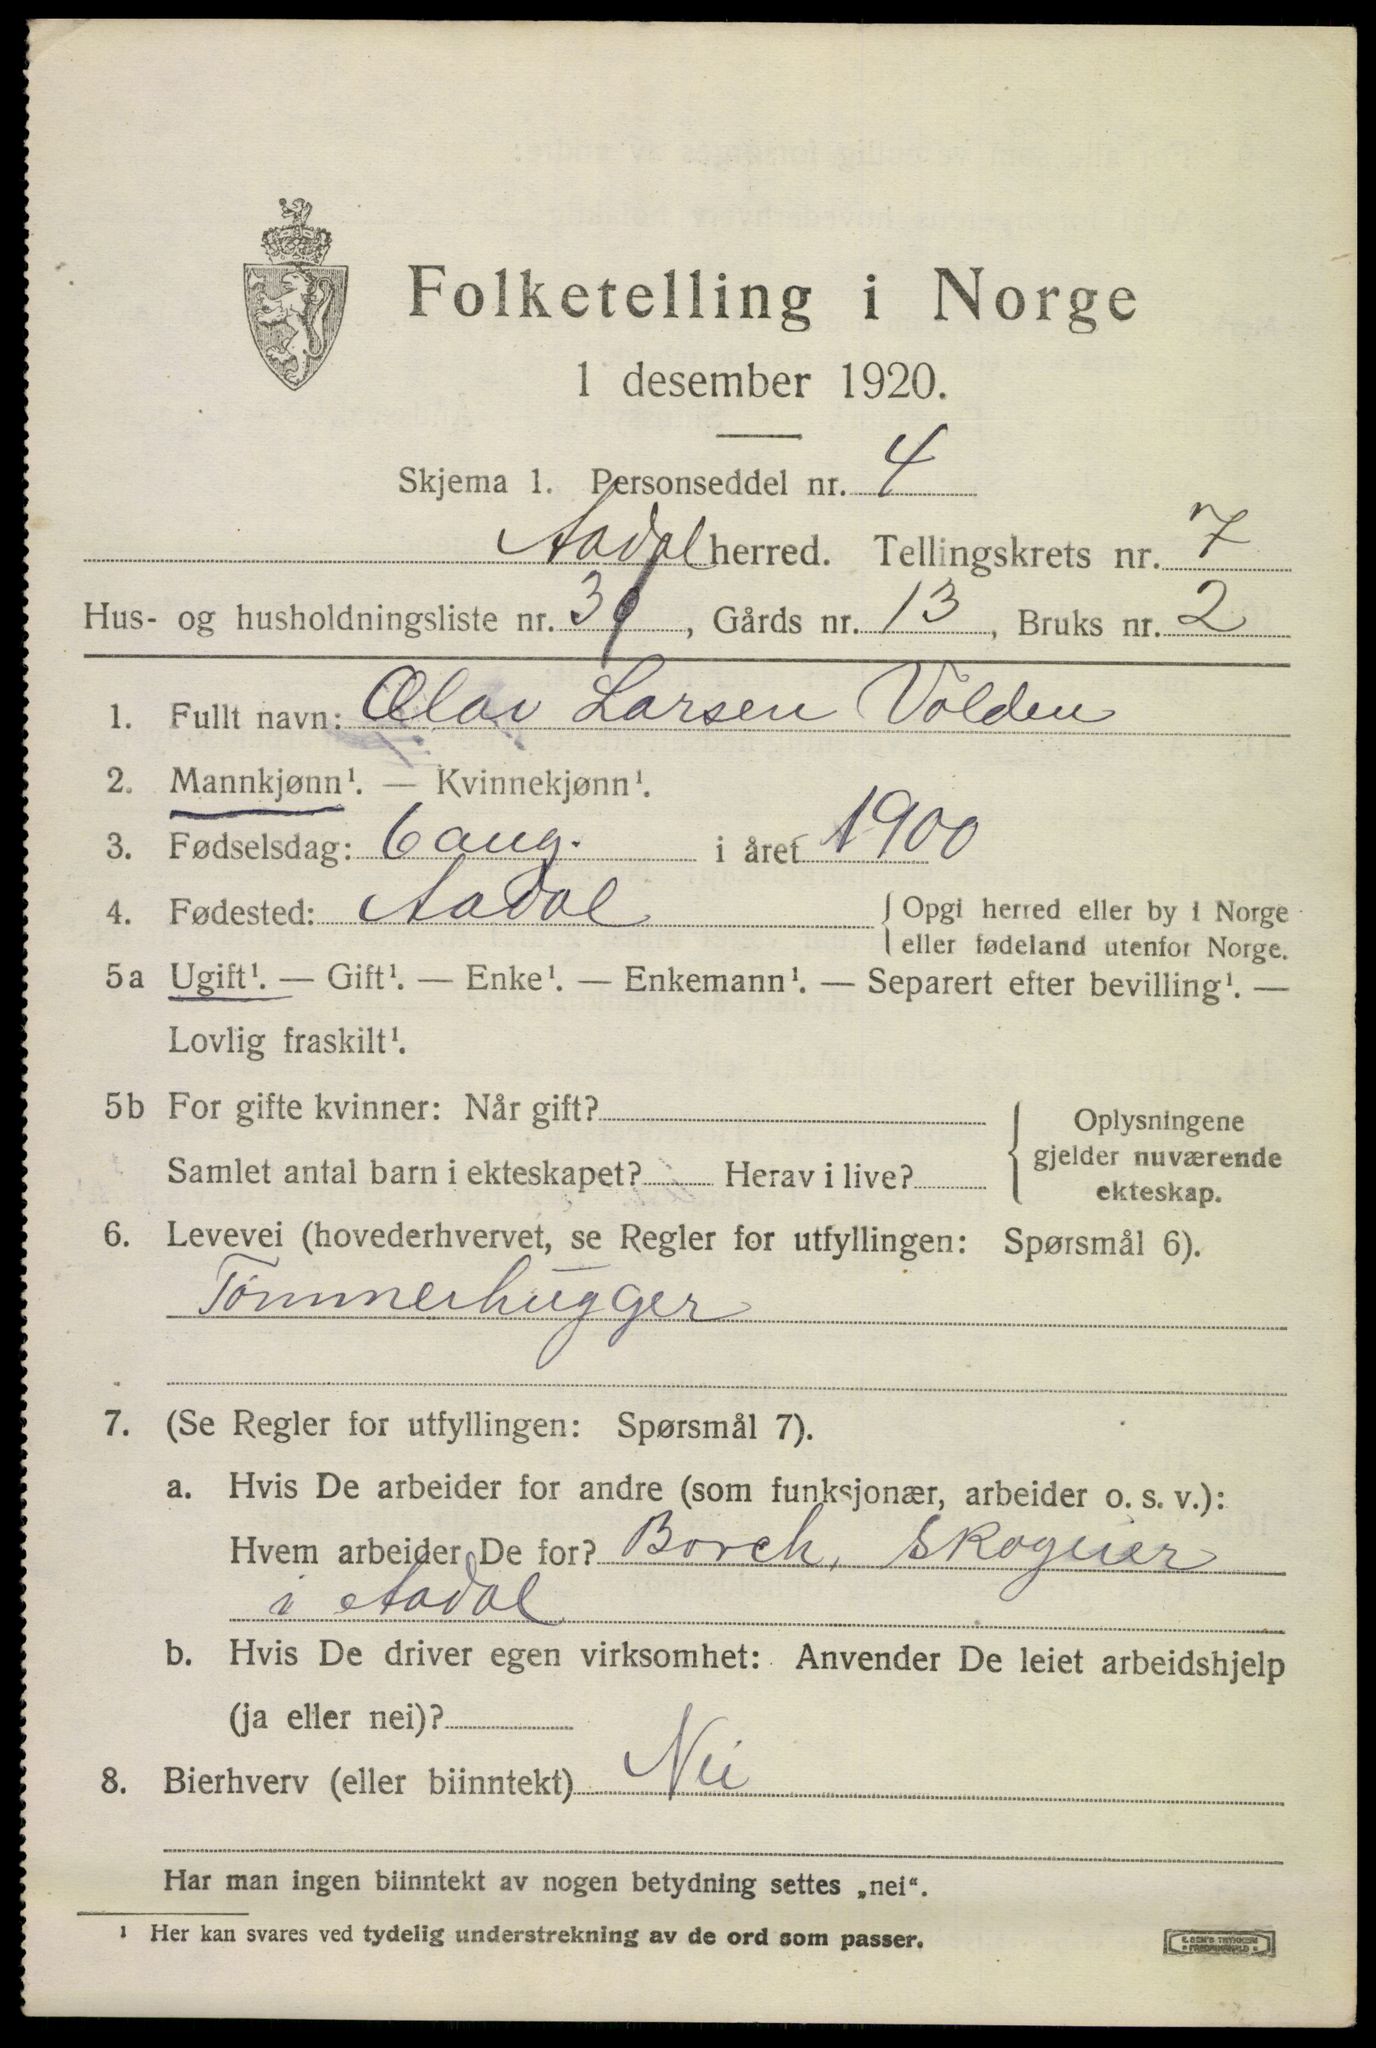 Folketelling i Norge
1 desember 1920.
Skjema 1. Personseddel nr. 4
Aadal herred. Tellingskrets nr. 7
Hus- og husholdningsliste nr. 39, Gårds nr. 13, Bruks nr. 2
1. Fullt navn: Olav Larsen Volden
2. Mannkjønn¹. — Kvinnekjønn¹.
3. Fødselsdag: 6 aug. i året 1900
4. Fødested: Aadal { Opgi herred eller by i Norge
eller fødeland utenfor Norge.
5a Ugift¹. — Gift¹. — Enke¹. — Enkemann¹. — Separert efter bevilling¹. —
Lovlig fraskilt¹.
5b For gifte kvinner: Når gift?
Samlet antal barn i ekteskapet? Herav i live?
{ Oplysningene
gjelder nuværende
ekteskap.
6. Levevei (hovederhvervet, se Regler for utfyllingen: Spørsmål 6).
Tømmerhugger
7. (Se Regler for utfyllingen: Spørsmål 7).
a. Hvis De arbeider for andre (som funksjonær, arbeider o. s. v.):
Hvem arbeider De for? Borch, Skogeier
i Aadal
b. Hvis De driver egen virksomhet: Anvender De leiet arbeidshjelp
(ja eller nei)?
8. Bierhverv (eller biinntekt) Nei
Har man ingen biinntekt av nogen betydning settes „nei“.
¹ Her kan svares ved tydelig understrekning av de ord som passer.